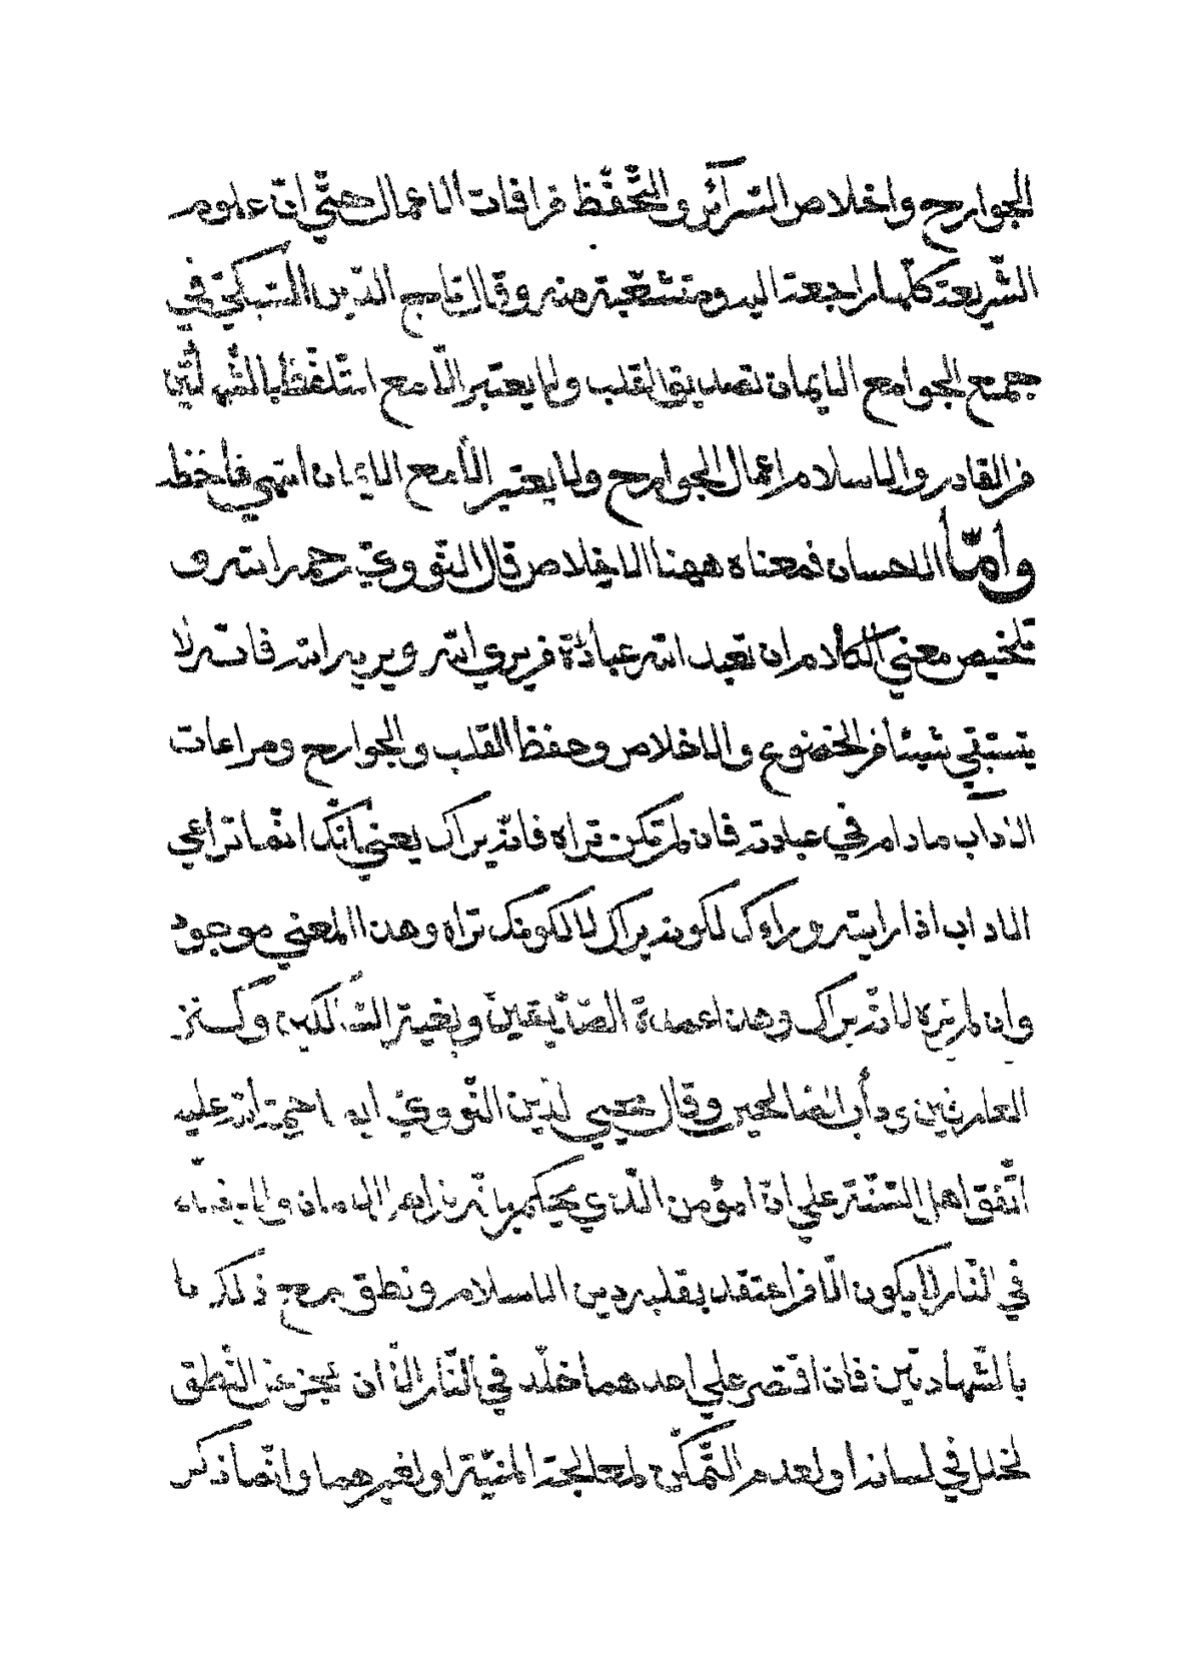 الجوارح واخلاص السّرآئر والتّحفّظ من افات الاعمال حتّي انّ علوم
الشّريعة كلّها راجعة اليه ومتشعّبة منه وقال تاج الدّين السّبكيّ في
جمع الجوامع الايمان تصديق القلب ولا يعتبر الّا مع التّلفّظ بالشّهادتين
من القادر والاسلام اعمال الجوارح ولا يعتبر الّا مع الايمان انتهي فاحفظه
وأمّا الاحسان فمعناه ههنا الاخلاص قال النّوويّ رحمه الله و
تلخيص معني الكلام ان تعبد الله عبادة من يري الله ويريه الله فانه لا
يستبقي شيئا من الخضوع والاخلاص وحفظ القلب والجوارح ومراعات
الادآب مادام في عبادته فان لم تكن تراه فانّه يراك يعني أنّك انّما تراعي
الاداب اذا رايته وراءك لكونه يراك لا لكونك تراه وهذا المعني موجود
وان لم تره لانّه يراك وهذا عمدة الصّدّيقين وبغية السّالكين وكنز
العارفين ودأب الصّالحين وقال محيي الدّين النّوويّ ايه رحمة الله عليه
اتّفق اهل السّنّة علي انّ المؤمن الّذي يحكم بانّه من اهل الايمان ولا يخلد
في النّار لا يكون الّا من اعتقد بقلبه دين الاسلام ونطق مع ذلك
بالشّهادتين فان اقتصر علي احدهما خلّد في النّار الّا ان يعجز عن النّطق
لخلل في لسانه او لعدم التّمكّن لمعالجة المنيّة او لغيرهما وانّما ذكر